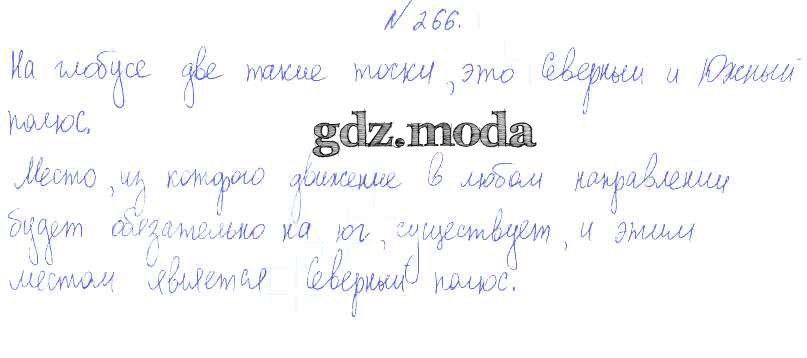 № 266.
На глобусе две такие тоски, это Северный и Южный
полюс.
gdz.moda
Место, из которого движение в любом направлении
будет обязательно на юг, существует, и этим
местом является Северный полюс.